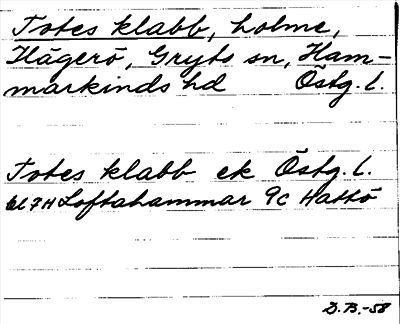 Totes klabb, holme,
Hägerö, Gryts sn, Ham-
markinds hd Östg. l.
Totes klabb ek Östg. l.
bl 7H Loftahammar 9c Hattö
D.B.-58